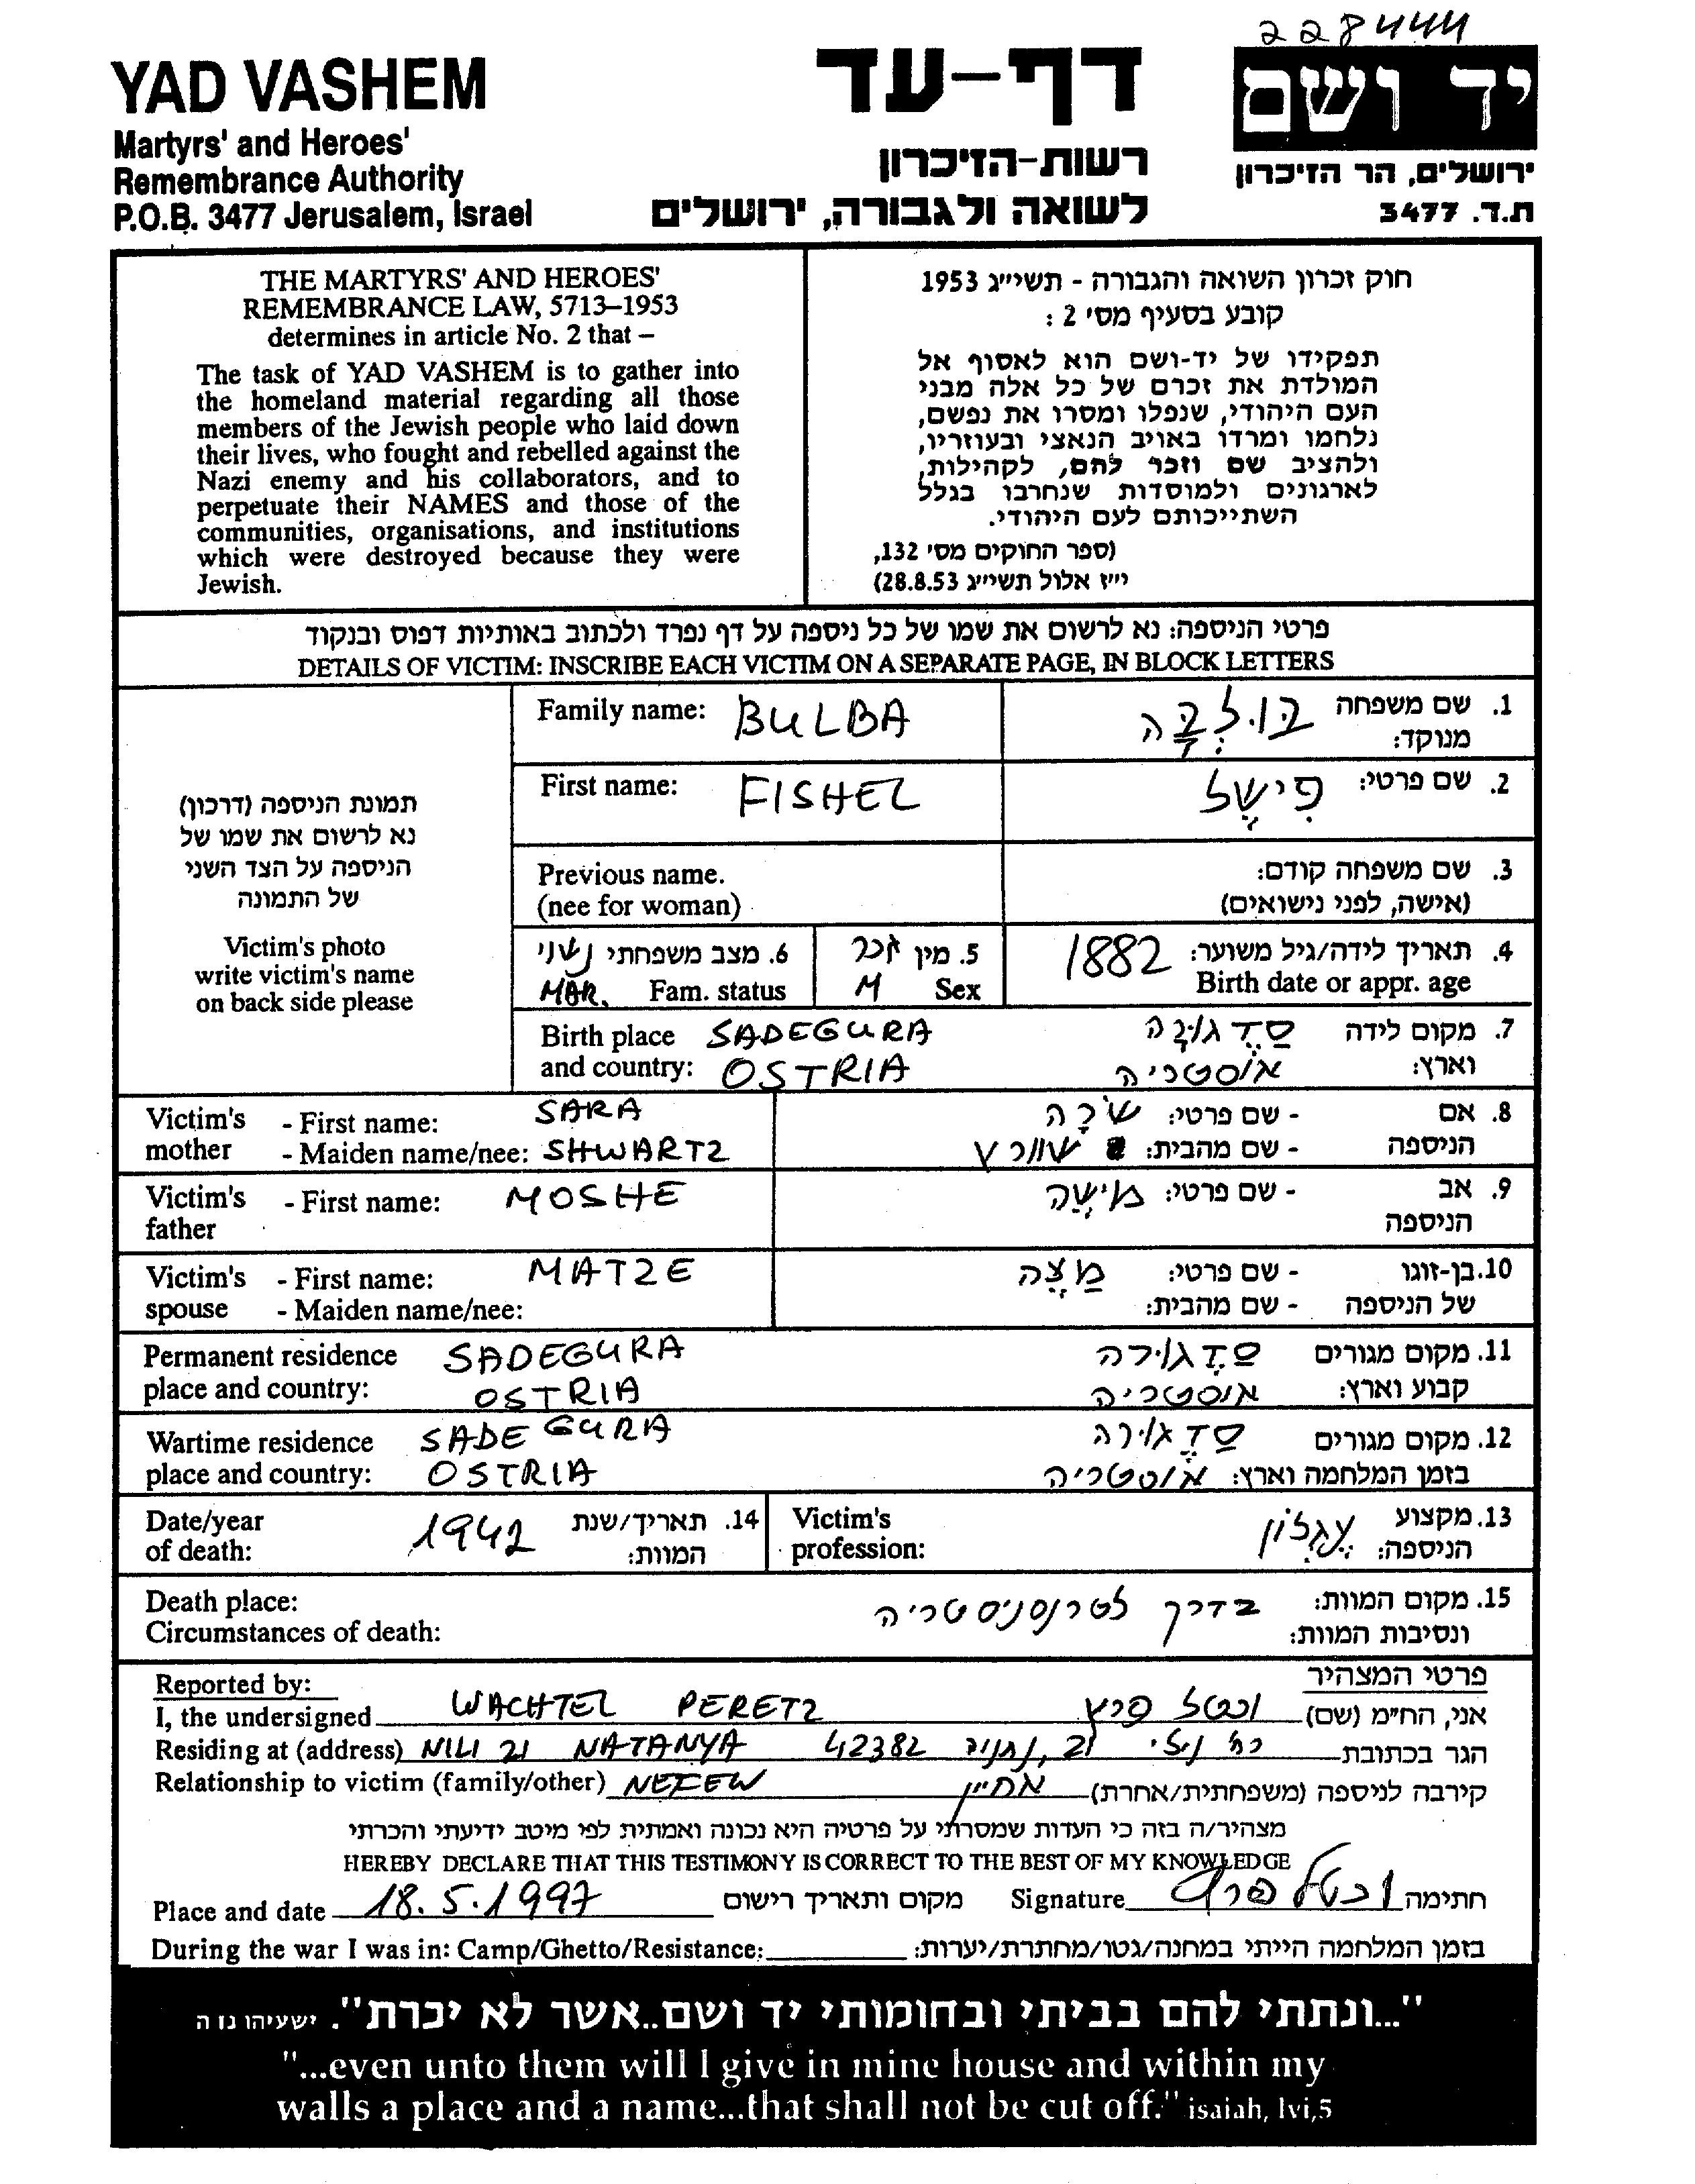 228444
YAD VASHEM
Martyrs' and Heroes'
Remembrance Authority
P.O.B. 3477 Jerusalem, Israel
דף-עד
רשות-הזיכרון
לשואה ולגבורה, ירושלים
יד ושם
ירושלים, הר הזיכרון
ת.ד. 3477
THE MARTYRS' AND HEROES'
REMEMBRANCE LAW, 5713–1953
determines in article No. 2 that –
The task of YAD VASHEM is to gather into
the homeland material regarding all those
members of the Jewish people who laid down
their lives, who fought and rebelled against the
Nazi enemy and his collaborators, and to
perpetuate their NAMES and those of the
communities, organisations, and institutions
which were destroyed because they were
Jewish.
חוק זכרון השואה והגבורה - תשי״ג 1953
קובע בסעיף מס׳ 2 :
תפקידו של יד-ושם הוא לאסוף אל
המולדת את זכרם של כל אלה מבני
העם היהודי, שנפלו ומסרו את נפשם,
נלחמו ומרדו באויב הנאצי ובעוזריו,
ולהציב שם וזכר להם, לקהילות,
לארגונים ולמוסדות שנחרבו בגלל
השתייכותם לעם היהודי.
(ספר החוקים מס׳ 132,
י״ז אלול תשי״ג 28.8.53)
פרטי הניספה: נא לרשום את שמו של כל ניספה על דף נפרד ולכתוב באותיות דפוס ובנקוד
DETAILS OF VICTIM: INSCRIBE EACH VICTIM ON A SEPARATE PAGE, IN BLOCK LETTERS
תמונת הניספה (דרכון)
נא לרשום את שמו של
הניספה על הצד השני
של התמונה
Victim's photo
write victim's name
on back side please
Family name: BULBA
1. שם משפחה בולבה
מנוקד:
First name: FISHEL
2. שם פרטי: פישל
Previous name.
(nee for woman)
3. שם משפחה קודם:
(אישה, לפני נישואים)
6. מצב משפחתי נשוי
MAR. Fam. status
5. מין זכר
M Sex
4. תאריך לידה/גיל משוער: 1882
Birth date or appr. age
Birth place SADEGURA
and country: OSTRIA
7. מקום לידה סדגורה
וארץ: אוסטריה
Victim's - First name: SARA
mother - Maiden name/nee: SHWARTZ
8. אם - שם פרטי: שרה
הניספה - שם מהבית: שוורץ
Victim's - First name: MOSHE
father
9. אב - שם פרטי: מישה
הניספה
Victim's - First name: MATZE
spouse - Maiden name/nee:
10. בן-זוגו - שם פרטי: מצה
של הניספה - שם מהבית:
Permanent residence SADEGURA
place and country: OSTRIA
11. מקום מגורים סדגורה
קבוע וארץ: אוסטריה
Wartime residence SADEGURA
place and country: OSTRIA
12. מקום מגורים סדגורה
בזמן המלחמה וארץ: אוסטריה
Date/year
of death: 1942
14. תאריך/שנת
המוות:
Victim's
profession:
13. מקצוע
הניספה: עגלון
Death place:
Circumstances of death:
15. מקום המוות: בדרך לטרנסניסטריה
ונסיבות המוות:
Reported by:
פרטי המצהיר
I, the undersigned WACHTEL PERETZ
אני, הח״מ (שם) וכטל פרץ
Residing at (address) NILI 21 NATANYA 42382
הגר בכתובת רח׳ נילי 21, נתניה
Relationship to victim (family/other) NEFEW
קירבה לניספה (משפחתית/אחרת) אחיין
מצהיר/ה בזה כי העדות שמסרתי על פרטיה היא נכונה ואמתית לפי מיטב ידיעתי והכרתי
HEREBY DECLARE THAT THIS TESTIMONY IS CORRECT TO THE BEST OF MY KNOWLEDGE
Place and date 18.5.1997 מקום ותאריך רישום
Signature וכטל פרץ חתימה
During the war I was in: Camp/Ghetto/Resistance:
בזמן המלחמה הייתי במחנה/גטו/מחתרת/יערות:
"...ונתתי להם בביתי ובחומותי יד ושם..אשר לא יכרת". ישעיהו נו ה
"...even unto them will I give in mine house and within my
walls a place and a name...that shall not be cut off." isaiah, lvi,5